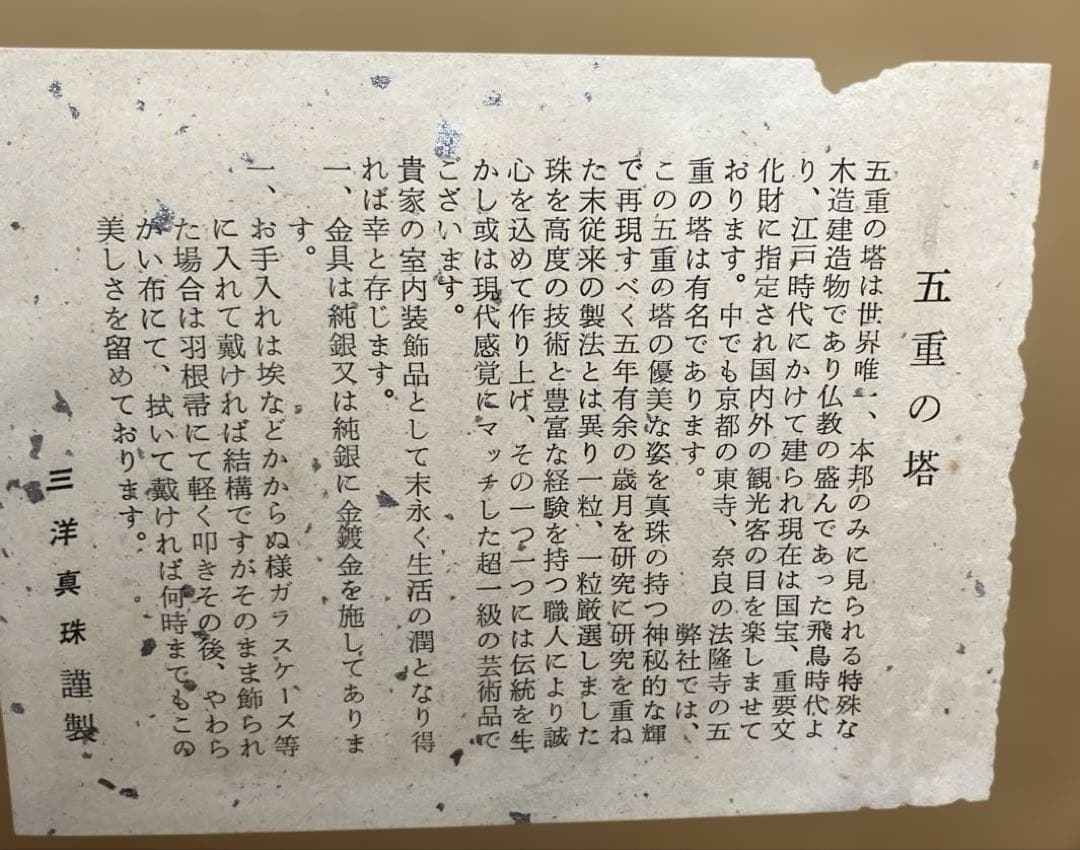 五重の塔
五重の塔は世界唯一、本邦のみに見られる特殊な
木造建造物であり仏教の盛んであった飛鳥時代よ
り、江戸時代にかけて建られ現在は国宝、重要文
化財に指定され国内外の観光客の目を楽しませて
おります。中でも京都の東寺、奈良の法隆寺の五
重の塔は有名であります。
弊社では、
この五重の塔の優美な姿を真珠の持つ神秘的な輝
で再現すべく五年有余の歳月を研究に研究を重ね
た末従来の製法とは異り一粒、一粒厳選しました
珠を高度の技術と豊富な経験を持つ職人により誠
心を込めて作り上げ、その一つ一つには伝統を生
かし或は現代感覚にマッチした超一級の芸術品で
ございます。
貴家の室内装飾品として末永く生活の潤となり得
れば幸と存じます。
一、金具は純銀又は純銀に金鍍金を施してありま
す。
一、お手入れは埃などかからぬ様ガラスケース等
に入れて戴ければ結構ですがそのまま飾られ
た場合は羽根帚にて軽く叩きその後、やわら
かい布にて、拭いて戴ければ何時までもこの
美しさを留めております。
三洋真珠謹製